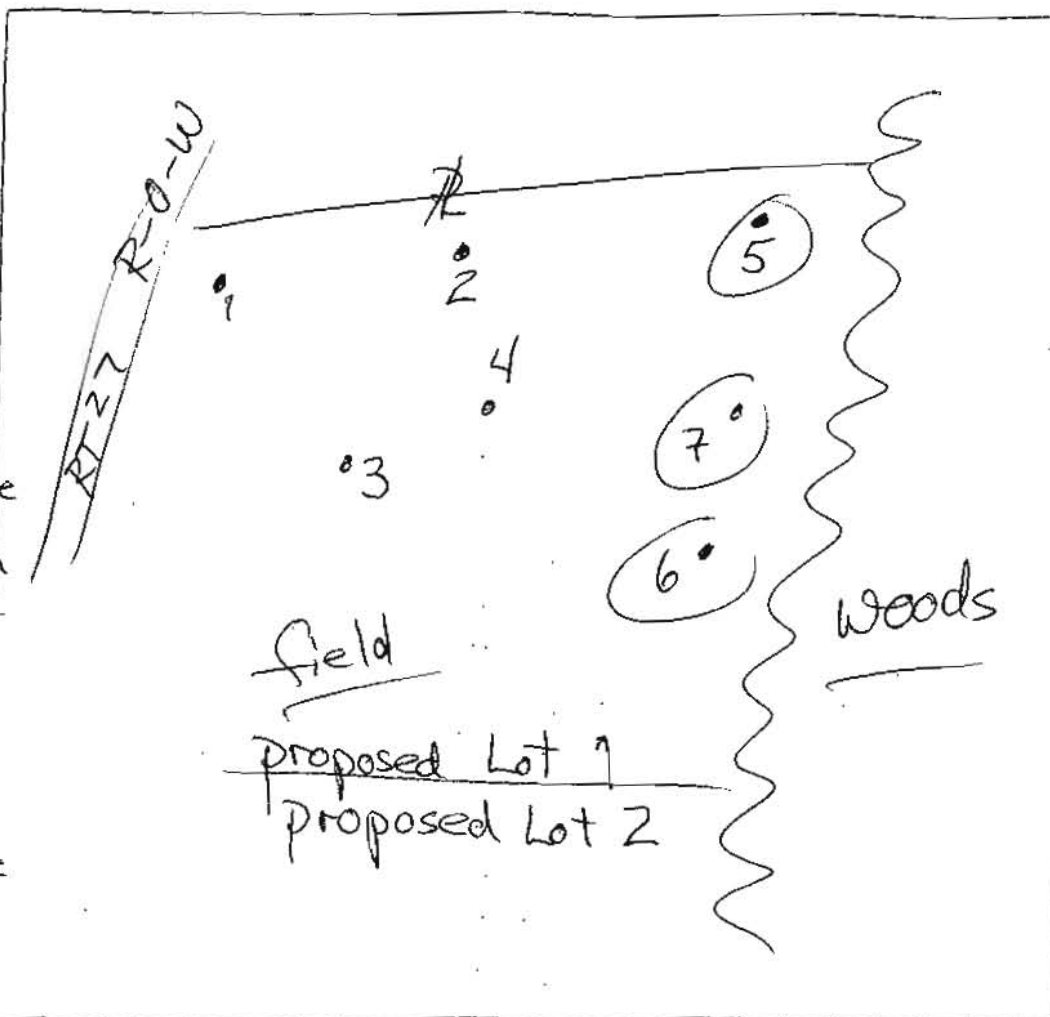 RT 27 R-O-W
PL
1
2
5
4
3
7
6
field
woods
proposed Lot 1
proposed Lot 2